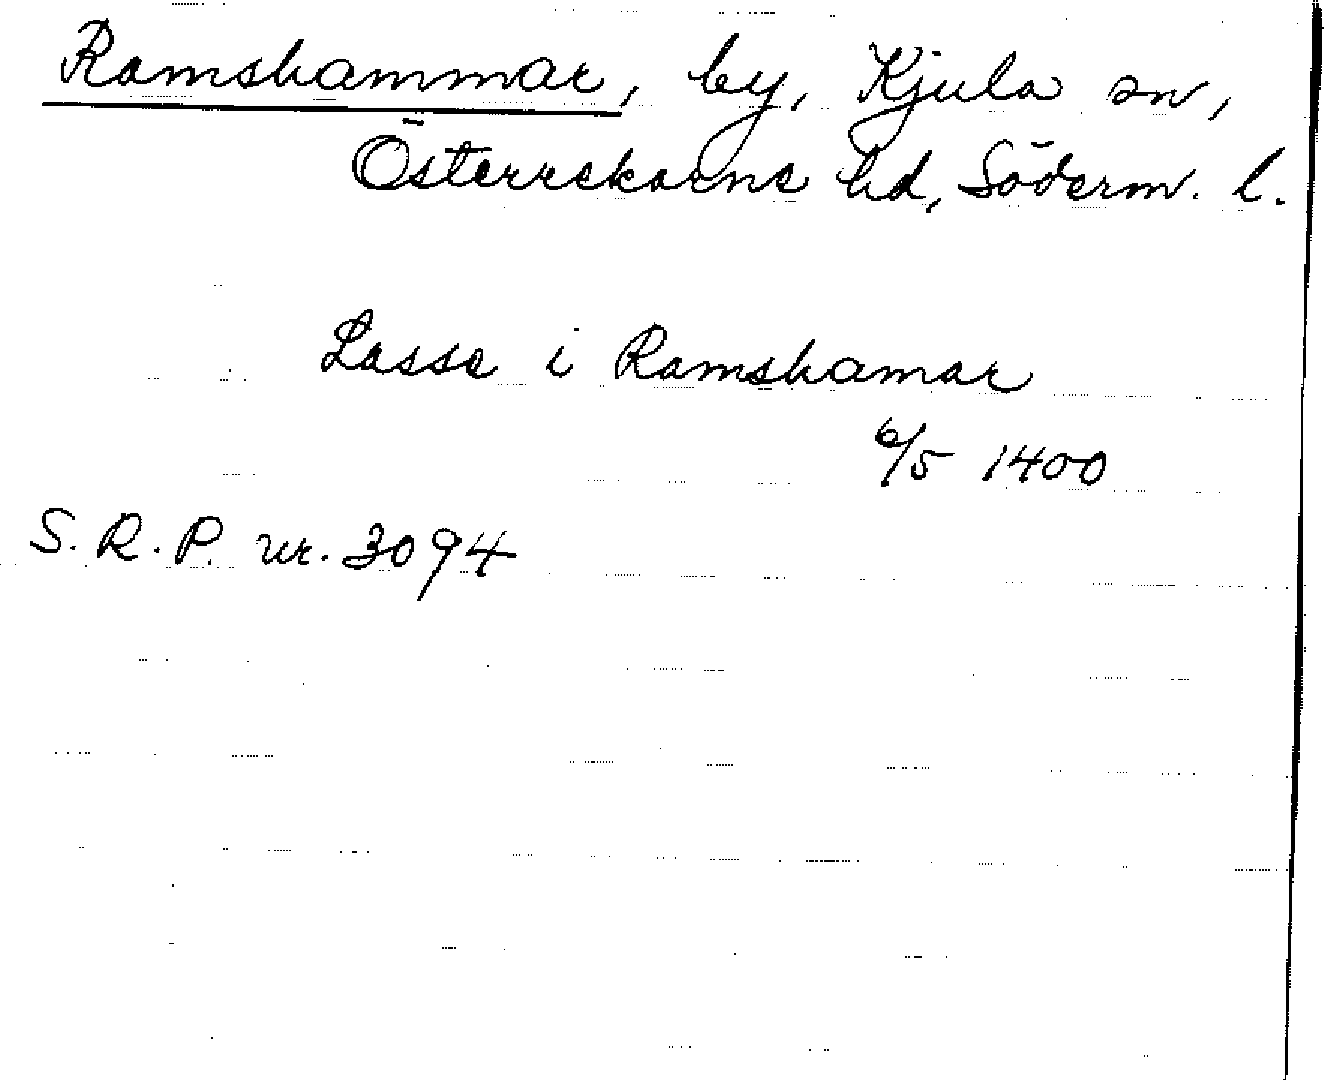 Ramshammar, by, Kjula sn,
Österrekarne hd, Söderm. l.
Lasse i Ramshamar
6/5 1400
S. R. P. nr. 3094